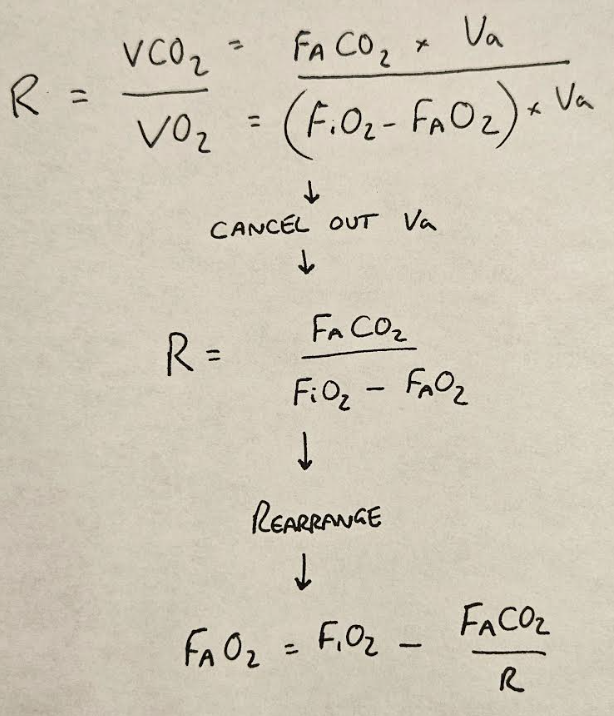 R = VCO₂ / VO₂ = = FACO₂ × Va / (FiO₂ - FAO₂) × Va
↓
CANCEL OUT Va
↓
R = FACO₂ / FiO₂ - FAO₂
↓
REARRANGE
↓
FAO₂ = FiO₂ - FACO₂ / R